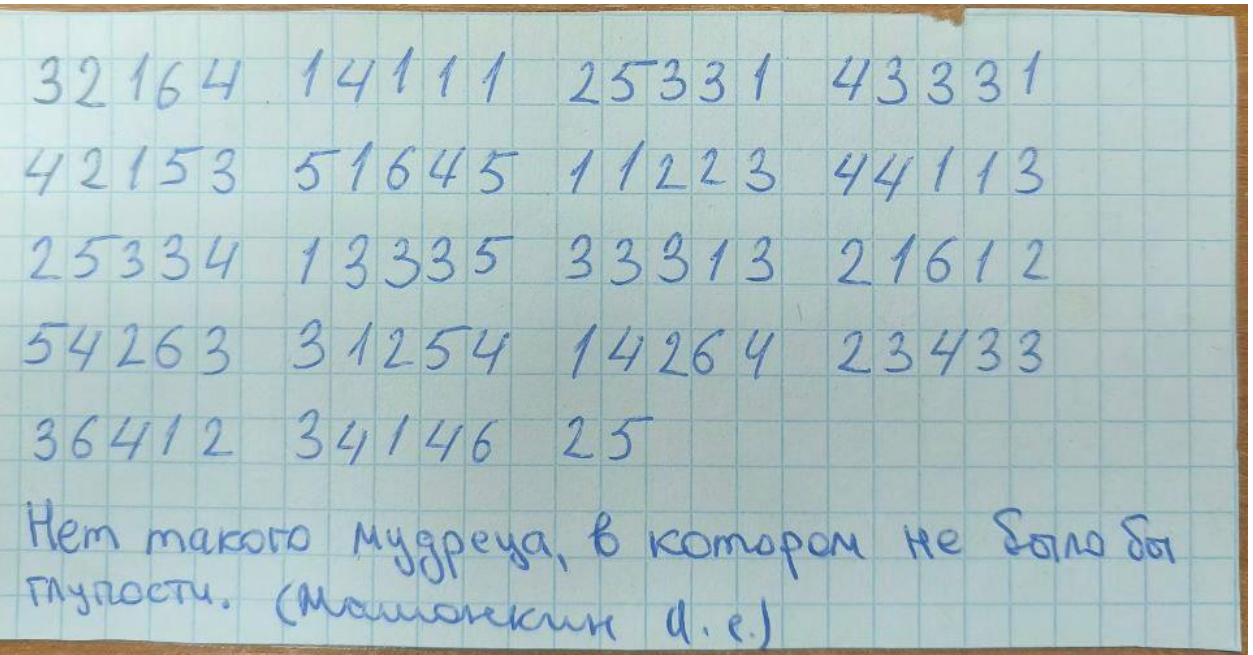 32164 14111 25331 43331
42153 51645 11223 44113
25334 13335 33313 21612
54263 31254 14264 23433
36412 34146 25
Нет такого мудреца, в котором не было бы
глупости. (Машонкин И. е.)